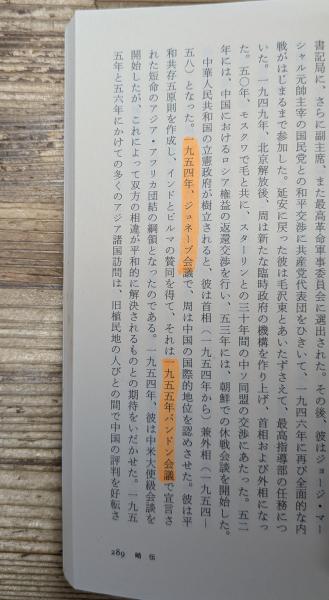 書記局に、さらに副主席、また最高革命軍事委員会に選出された。その後、彼はジョージ・マー
シャル元帥主宰の国民党との和平交渉に共産党代表団をひきいて、一九四六年に再び全面的な内
戦がはじまるまで参加した。延安に戻った彼は毛沢東とあいたずさえて、最高指導部の任務につ
いた。一九四九年、北京解放後、周は新たな臨時政府の機構を作り上げ、首相および外相になっ
た。五〇年、モスクワで毛と共に、スターリンとの三十年間の中ソ同盟の交渉にあたった。五二
年には、中国におけるロシア権益の返還交渉を行い、五三年には、朝鮮での休戦会談を開始した。
中華人民共和国の立憲政府が樹立されると、彼は首相(一九五四年から)兼外相(一九五四―
五八)となった。一九五四年、ジュネーブ会議で、周は中国の国際的地位を認めさせた。彼は平
和共存五原則を作成し、インドとビルマの賛同を得て、それは一九五五年バンドン会議で宣言さ
れた短命のアジア・アフリカ団結の綱領となったのである。一九五四年、彼は中米大使級会談を
開始したが、これによって双方の相違が平和的に解決されるものとの期待をいだかせた。一九五
五年と五六年にかけての多くのアジア諸国訪問は、旧植民地の人びとの間で中国の評判を好転さ
289 略伝